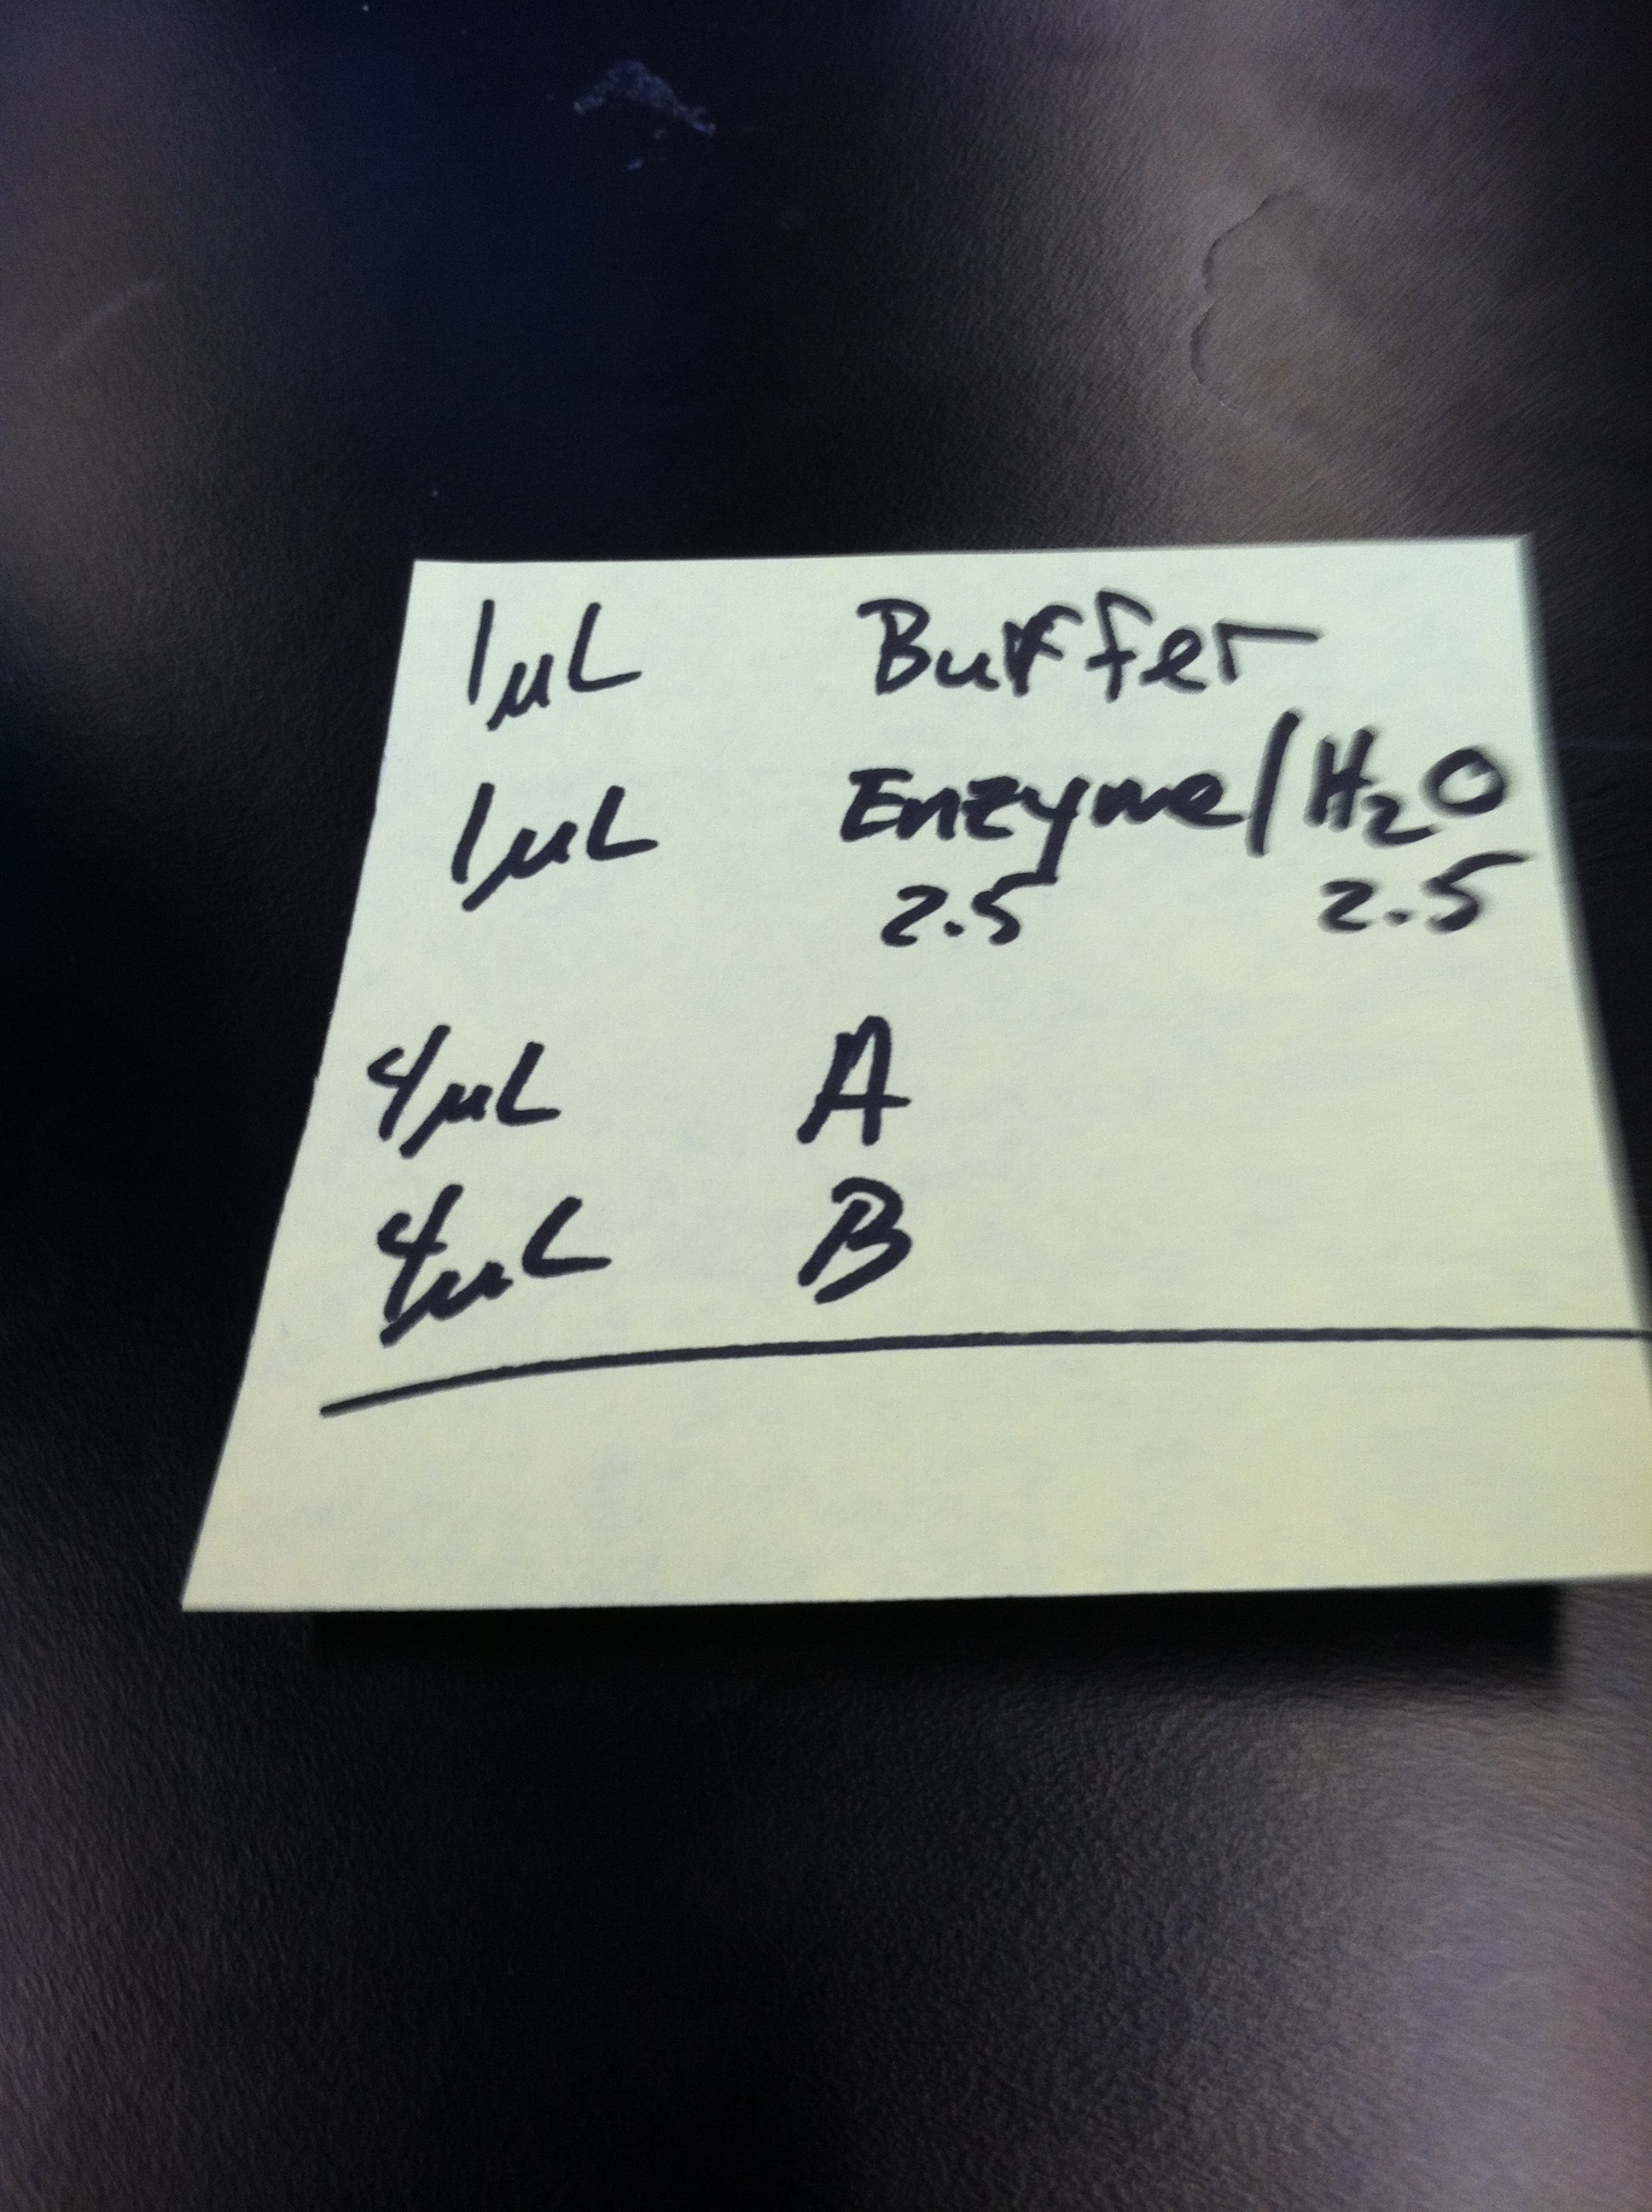 1µL Buffer
1µL Enzyme/H₂O
2.5 2.5
4µL A
4µL B